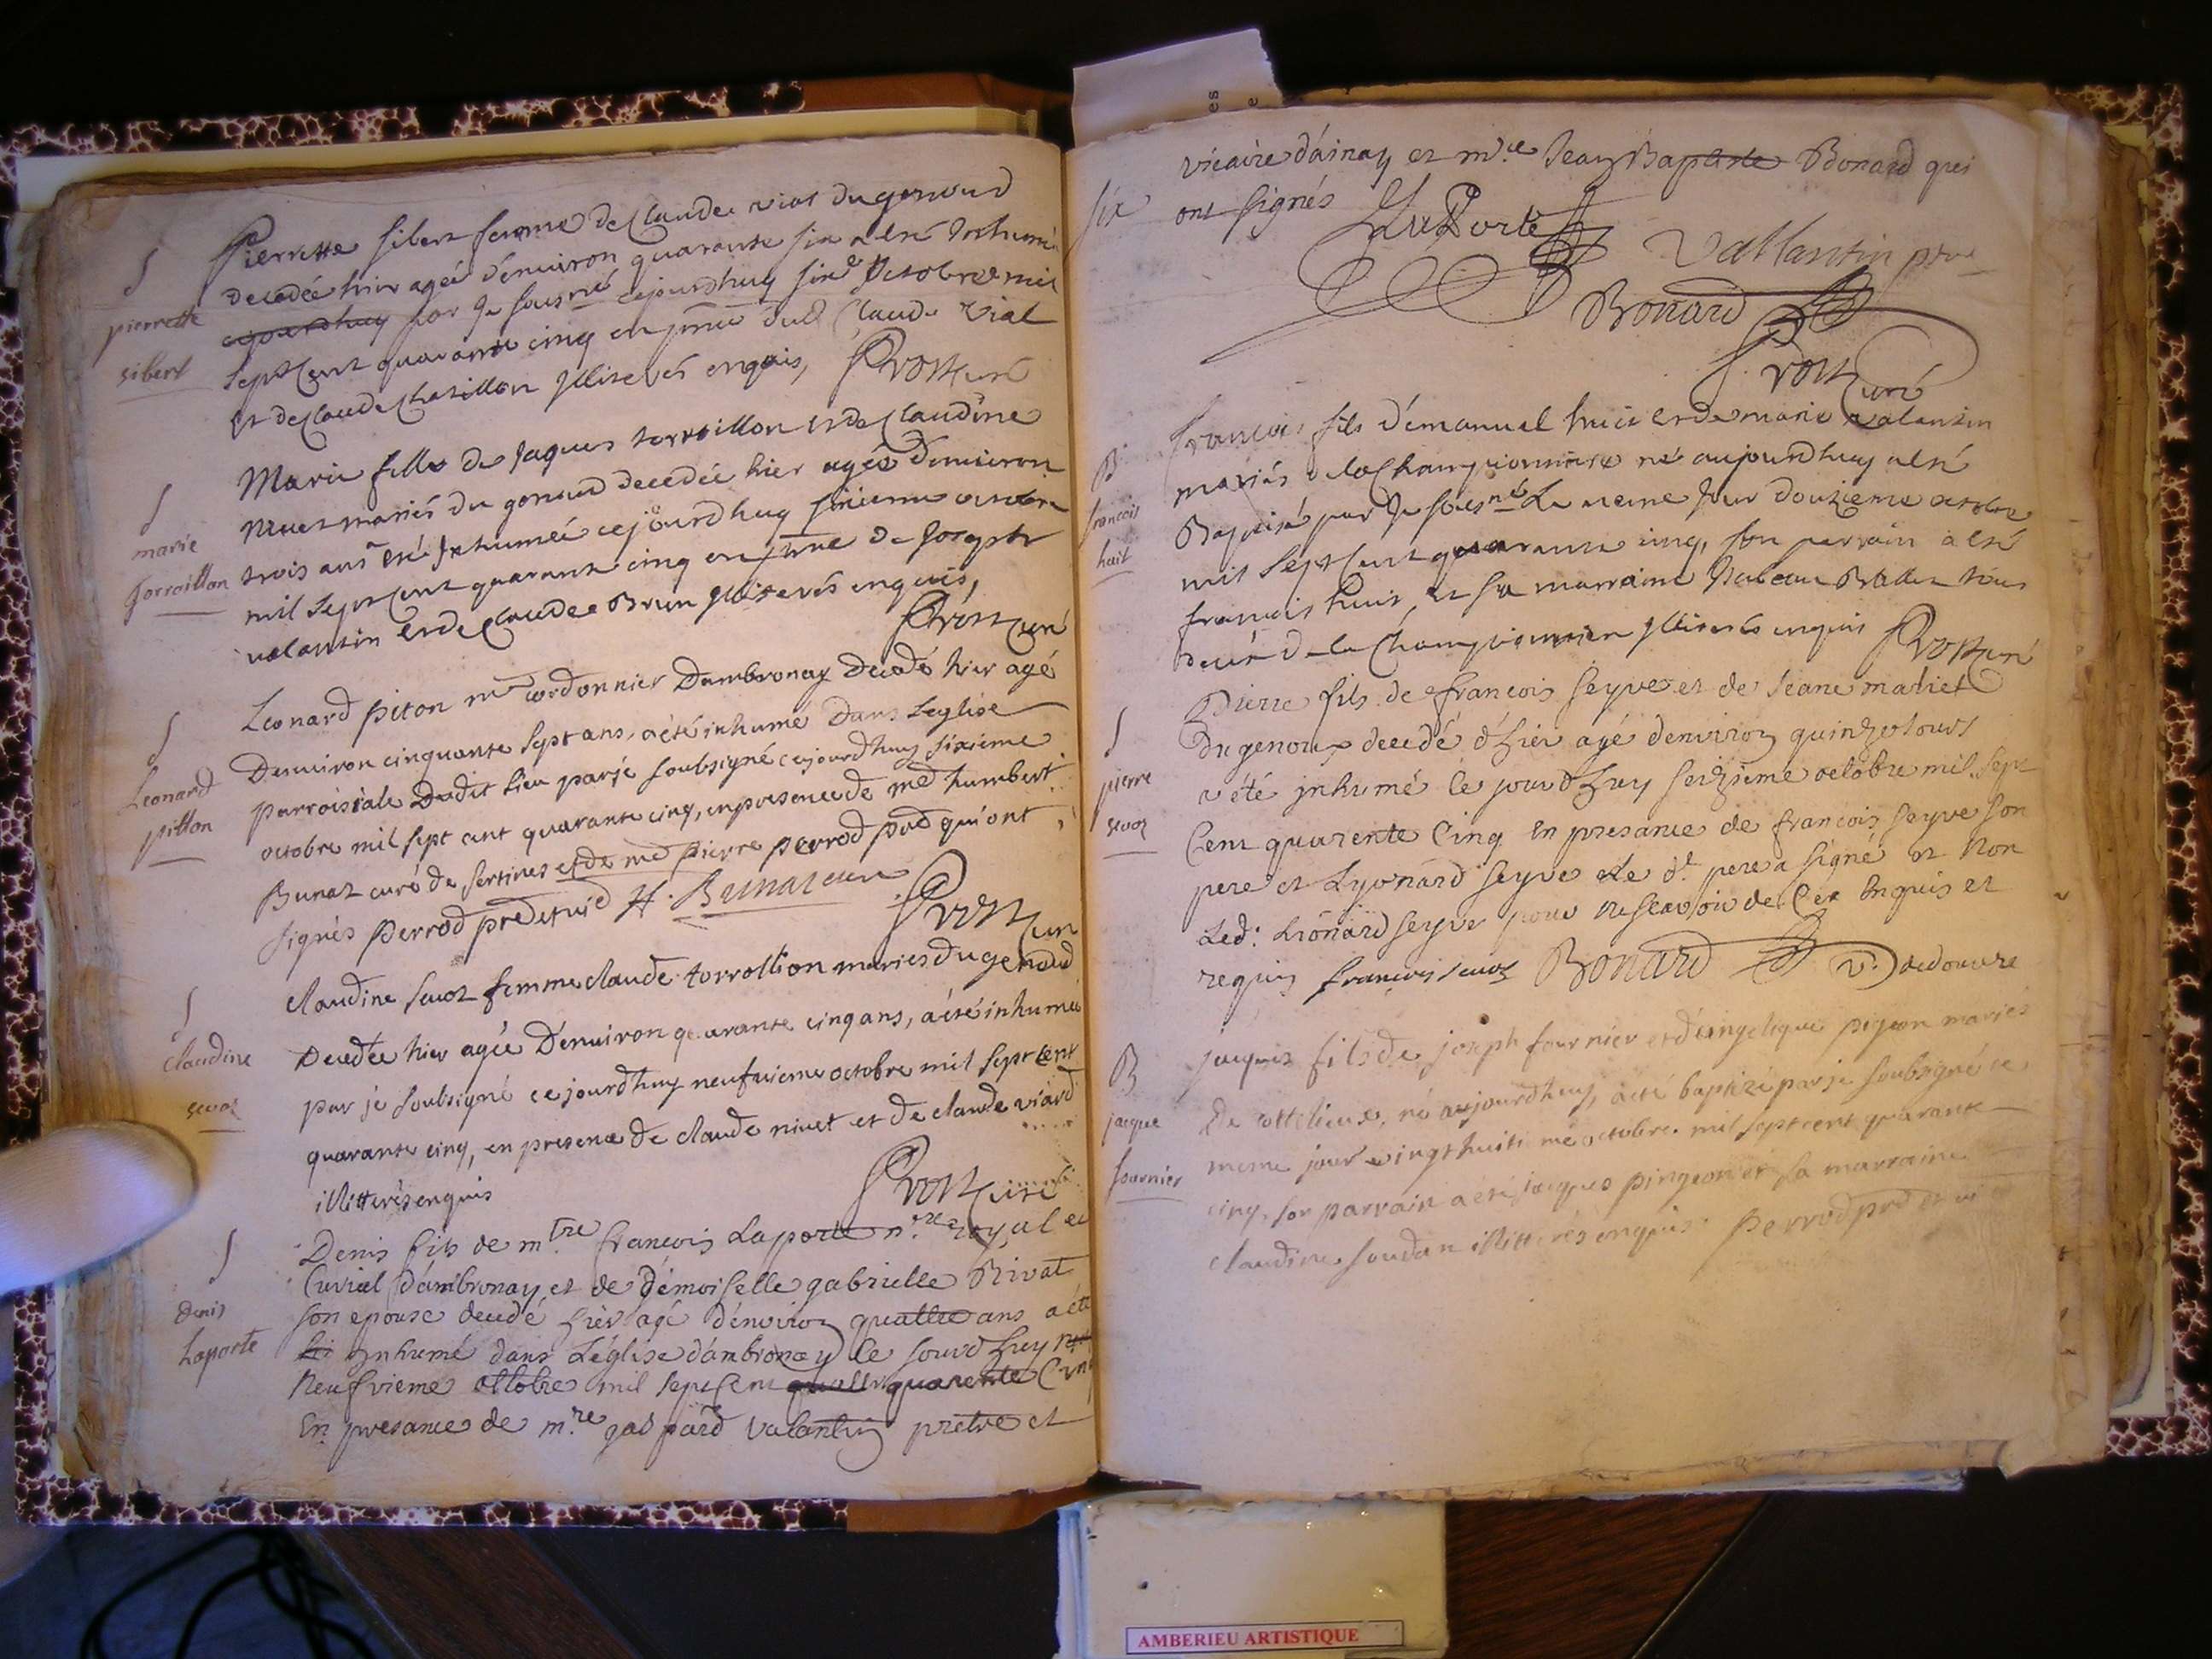 S
pierrette
sibert
Pierrette sibert femme de Claude vial du genoud
decedée hier agée d'environ quarante six a esté inhumé
cejourdhuy par Je sousné cejourdhuy sixe octobre mil
sept Cent quarante cinq en pnce dud Claude vial
et de Claude Chatillon Illiterés enquis, Prost curé
S
marie
Marie fille de Jaques torroillon et de Claudine
nivet mariés du genoud decedée hier agée d'environ
trois ans esté Inhumée cejourdhuy sixieme octobre
mil sept cent quarante cinq en pnce de Joseph
valantin et de Claude Brun Illiterés enquis,
Prost curé
S
Leonard
pitton
Leonard piton me cordonnier Dambronay Decedé hier agé
Denviron cinquante sept ans, a été inhumé Dans Leglise
parroisiale Dudit Lieu par je soubsigné cejourdhuy sixieme
octobre mil sept cent quarante cinq, en presence de me humbert
Bunat curé de sertines et de me pierre perrod qui ont
signés perrod H. Bunat curé
Prost curé
S
claudine
sevoz
claudine sevoz femme claude torrollion maries du genoud
Decedée hier agée Denviron quarante cinq ans, a été inhumée
par je soubsigné ce jourdhuy neufvieme octobre mil sept cent
quarante cinq, en presence de claude nivet et de claude viard
illitterés enquis
Prost curé
S
Denis
Laporte
Denis fils de mtre francois Laporte n.re royal et
Curial d'ambronay et de demoiselle gabrielle Rivat
son epouse decedé hier agé d'environ quattre ans a été
inhumé dans L'église d'ambronay ce jourd huy
neufvieme octobre mil sept Cent quarente Cinq
En presance de m.re gaspard valantin prêtre et
six
vicaire d'ainay et m.re Jean Baptiste Bonard qui
ont signés
LaPorte
Vallantin
Bonard
Prost curé
B
francois
huit
francois fils d'emanuel huit et de marie valantin
mariés de la Championniere né aujourdhuy a esté
Baptisé par Je sousné Le meme Jour douzieme octobre
mil sept Cent quarante cinq, son parrain a esté
francois huit, et sa marraine tous
deux de la Championniere Illiterés enquis Prost curé
S
pierre
sevoz
Pierre fils de francois seyve et de Jeane
du genoux decedé d'hier agé denviron quinze Jours
a été inhumé ce jourd huy seizieme octobre mil sept
Cent quarente Cinq En presance de francois seyve son
pere et Lyonard seyve Le d.t pere a signé et Non
Led: Lionard seyve pour ne scavoir de Ce Enquis et
requis francois sevoz Bonard
B
jacque
fournier
jacques fils de joseph fournier et d'angelique pigeon mariés
De cottelieux, né aujourdhuy, a été baptizé par je soubsigné ce
meme jour vingt huitieme octobre mil sept cent quarante
cinq, son parrain a été jacques pingeon et sa marraine
claudine soudan illitterés enquis. perrod
AMBERIEU ARTISTIQUE